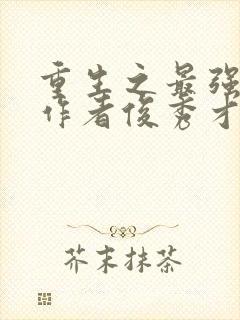 重生之最强
作者俊秀才
芥末抹茶